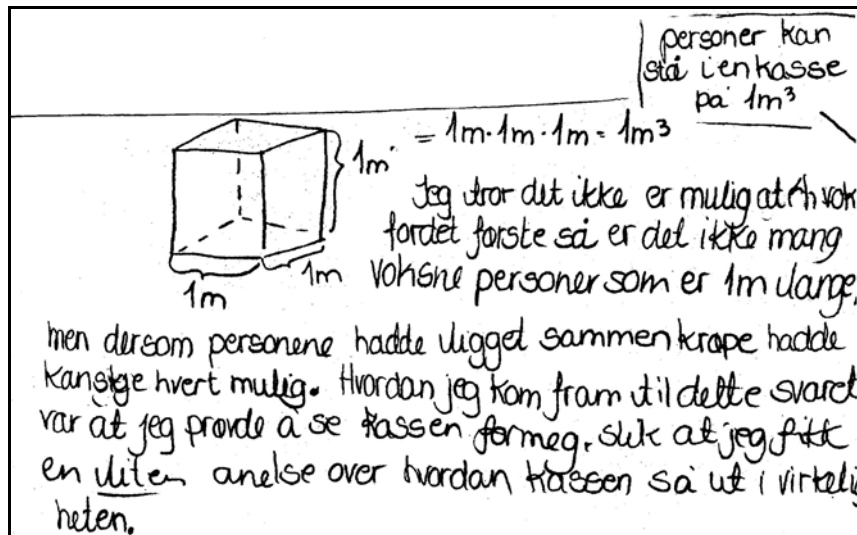 personer kan
stå i en kasse
på 1m³
= 1m·1m·1m = 1m³
1m
1m
1m
Jeg tror det ikke er mulig at
fordet første så er det ikke mang
voksne personer som er 1m lange,
men dersom personene hadde ligget sammenkrøpe hadde
kansige hvert mulig. Hvordan jeg kom fram til dette svaret
var at jeg prøvde å se kassen formeg, slik at jeg fikk
en liten anelse over hvordan kassen så ut i virkelig
heten.